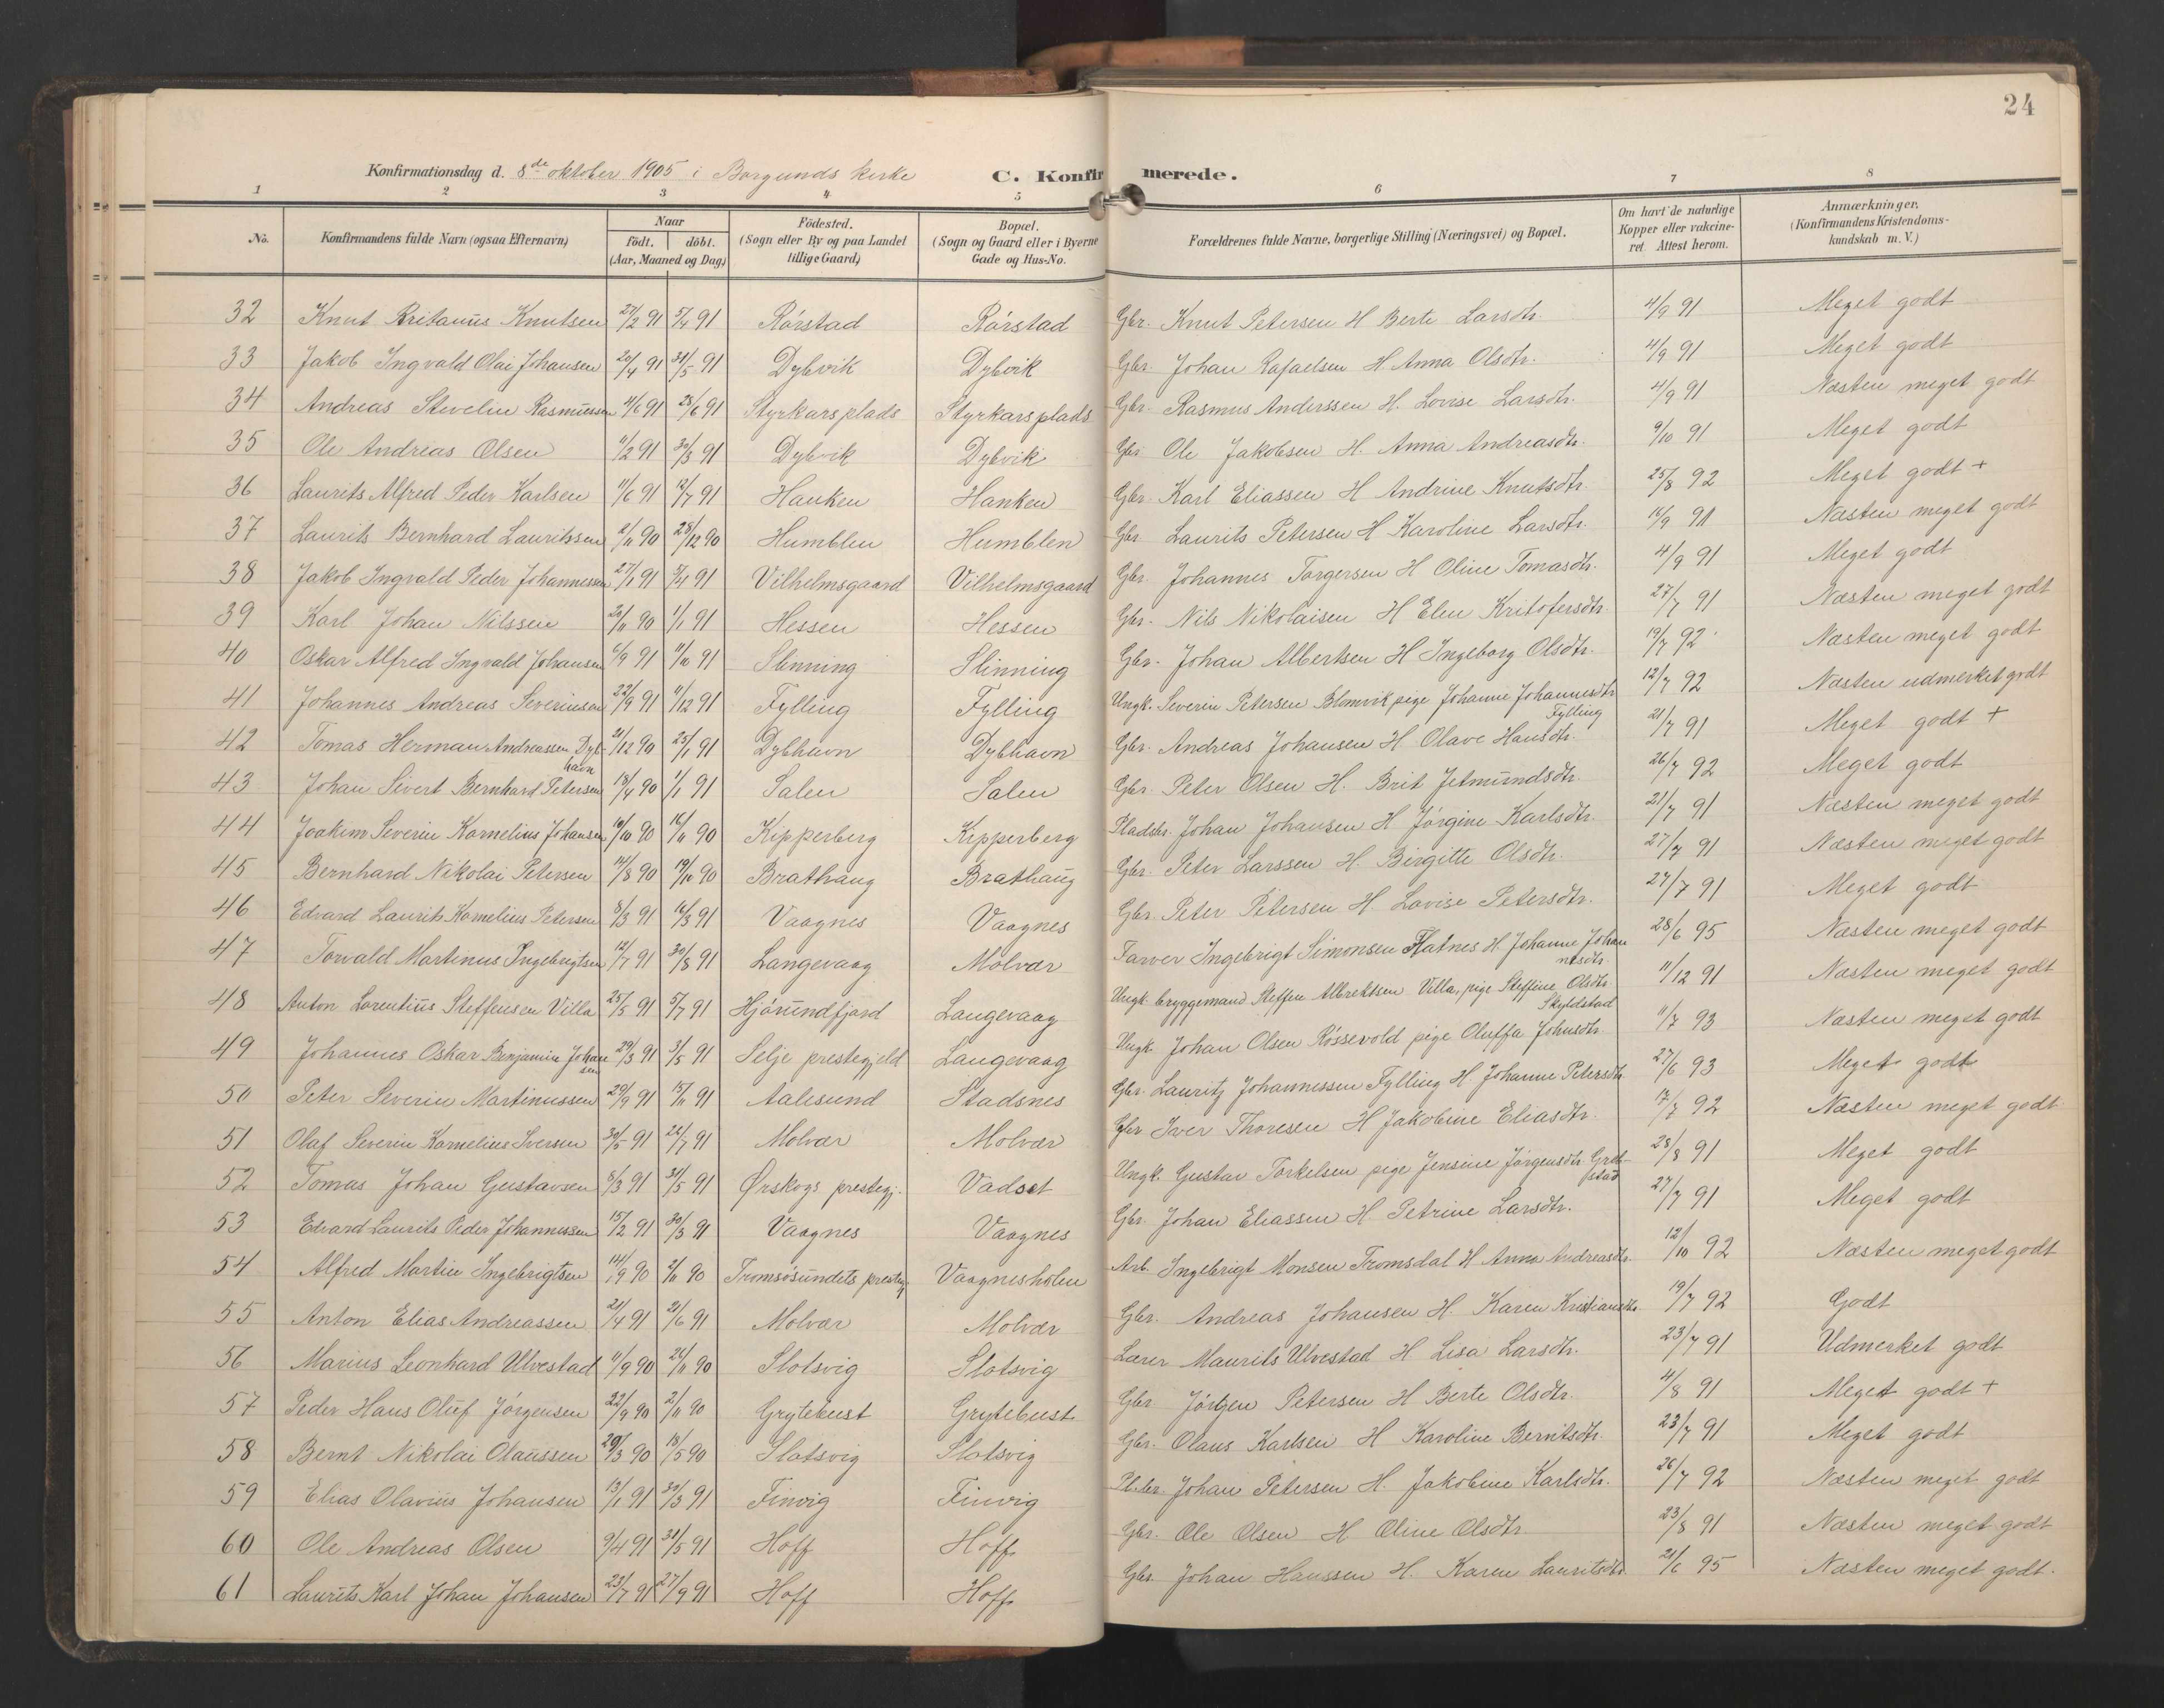 24
Konfirmationsdag d. 8de oktober 1905 i Borgunds kirke C. Konfirmerede.
1 2 3 4 5 6 7 8
No. Konfirmandens fulde Navn (ogsaa Efternavn) Naar födt. döbt. (Aar, Maaned og Dag) Födested. (Sogn eller By og paa Landet tillige Gaard) Bopæl. (Sogn og Gaard eller i Byerne Gade og Hus-No. Forældrenes fulde Navne, borgerlige Stilling (Næringsvei) og Bopæl. Om havt de naturlige Kopper eller vakcineret. Attest herom. Anmærkninger. (Konfirmandens Kristendomskundskab m. V.)
32 Knut Kritanus Knutsen 27/2 91 5/4 91 Rörstad Rörstad Gbr. Knut Petersen H Berte Larsdtr. 4/9 91 Meget godt
33 Jakob Ingvald Olai Johansen 20/4 91 31/5 91 Dybvik Dybvik Gbr. Johan Rafaelsen H Anna Olsdtr. 4/9 91 Meget godt
34 Andreas Stevelin Rasmussen 4/6 91 28/6 91 Styrkarsplads Styrkarsplads Gbr. Rasmus Anderssen H. Lovise Larsdtr. 4/9 91 Næsten meget godt
35 Ole Andreas Olsen 11/2 91 30/3 91 Dybvik Dybvik Gbr. Ole Jakobsen H. Anna Andreasdtr. 9/10 91 Meget godt
36 Laurits Alfred Peder Karlsen 11/6 91 12/7 91 Hanken Hanken Gbr. Karl Eliassen H Andrine Knutsdtr. 25/8 92 Meget godt +
37 Laurits Bernhard Lauritssen 2/11 90 28/12 90 Humblen Humblen Gbr. Laurits Petersen H Karoline Larsdtr. 14/9 91 Næsten meget godt
38 Jakob Ingvald Peder Johannessen 27/1 91 5/4 91 Vilhelmsgaard Vilhelmsgaard Gbr. Johannes Torgersen H Oline Tomasdtr. 4/9 91 Meget godt
39 Karl Johan Nilssen 20/11 90 1/1 91 Hessen Hessen Gbr. Nils Nikolaisen H Elen Kritofersdtr 27/7 91 Næsten meget godt
40 Oskar Alfred Ingvald Johansen 6/9 91 11/10 91 Slinning Slinning Gbr. Johan Albertsen H Ingeborg Olsdtr. 19/7 92 Næsten meget godt
41 Johannes Andreas Severinsen 22/9 91 11/12 91 Fylling Fylling Ungk. Severin Petersen Blomvik pige Johanne Johannesdtr Fylling 12/7 92 Næsten udmerket godt
42 Tomas Herman Andreassen Dybhavn 21/12 90 25/1 91 Dybhavn Dybhavn Gbr. Andreas Johansen H Olave Hansdtr. 21/7 91 Meget godt +
43 Johan Sivert Bernhard Petersen 18/4 90 1/1 91 Salen Salen Gbr. Peter Olsen H. Brit Jetmundsdtr. 26/7 92 Meget godt
44 Joakim Severin Kornelius Johansen 10/10 90 16/11 90 Kipperberg Kipperberg Pladsbr. Johan Johansen H Jörgine Karlsdtr. 21/7 91 Næsten meget godt
45 Bernhard Nikolai Petersen 14/8 90 19/10 90 Brathaug Brathaug Gbr. Peter Larssen H. Birgitte Olsdtr. 27/7 91 Næsten meget godt
46 Edvard Laurits Kornelius Petersen 8/3 91 16/3 91 Vaagnes Vaagnes Gbr. Peter Petersen H Lovise Petersdtr. 27/7 91 Meget godt
47 Torvald Martinus Ingebrigtsen 12/7 91 30/8 91 Langevaag Molvær Farver Ingebrigt Simonsen Flatnes H. Johanne Johannesdtr. 28/6 95 Næsten meget godt
48 Anton Lorentius Steffensen Villa 25/5 91 5/7 91 Hjörundfjord Langevaag Ungk. bryggemand Steffen Albrektsen Villa, pige Steffine Olsdtr. Skyldstad 11/12 91 Næsten meget godt
49 Johannes Oskar Benjamin Johansen 29/3 91 3/5 91 Selje prestegjeld Langevaag Ungk. Johan Olsen Rössevold pige Oluffa Johnsdtr. 11/7 93 Næsten meget godt
50 Peter Severin Martinussen 29/9 91 15/11 91 Aalesund Stadsnes Gbr. Lauritz Johannessen Fylling H. Johanne Petersdtr 27/6 93 Meget godt
51 Olaf Severin Kornelius Iversen 30/5 91 26/7 91 Molvær Molvær Gbr Iver Thoresen H Jakobine Eliasdtr. 17/7 92 Næsten meget godt
52 Tomas Johan Gustavsen 8/3 91 31/5 91 Ørskogs prestegj. Vadset Ungk. Gustav Torkelsen pige Jensine Jörgensdtr. Gretstad 28/8 91 Meget godt
53 Edvard Laurits Peder Johannessen 15/2 91 30/3 91 Vaagnes Vaagnes Gbr. Johan Eliassen H Petrine Larsdtr. 27/7 91 Meget godt
54 Alfred Martin Ingebrigtsen 14/9 90 2/11 90 Tromsösundets prestegj. Vaagnesholen Arb. Ingebrigt Monsen Tromsdal H Anna Andreasdtr. 12/10 92 Næsten meget godt
55 Anton Elias Andreassen 21/4 91 21/6 91 Molvær Molvær Gbr. Andreas Johansen H. Karen Kristiansdtr. 19/7 92 Godt
56 Marius Leonhard Ulvestad 11/9 90 24/11 90 Slotsvig Slotsvig Lærer Maurits Ulvestad H Lisa Larsdtr. 23/7 91 Udmerket godt
57 Peder Hans Oluf Jörgensen 22/9 90 2/11 90 Grytebust Grytebust Gbr Jörgen Petersen H Berte Olsdtr. 4/8 91 Meget godt +
58 Bernt Nikolai Olaussen 20/3 90 18/5 90 Slotsvig Slotsvig Gbr. Olaus Karlsen H Karoline Berntsdtr. 23/7 91 Meget godt
59 Elias Olavius Johansen 13/1 91 30/3 91 Finvig Finvig Pl.br. Johan Petersen H. Jakobine Karlsdtr. 26/7 92 Næsten meget godt
60 Ole Andreas Olsen 9/4 91 31/5 91 Hoff Hoff Gbr. Ole Olsen H Oline Olsdtr. 23/8 91 Næsten meget godt
61 Laurits Karl Johan Johansen 23/7 91 27/9 91 Hoff Hoff Gbr. Johan Hanssen H. Karen Lauritsdtr. 21/6 95 Næsten meget godt.